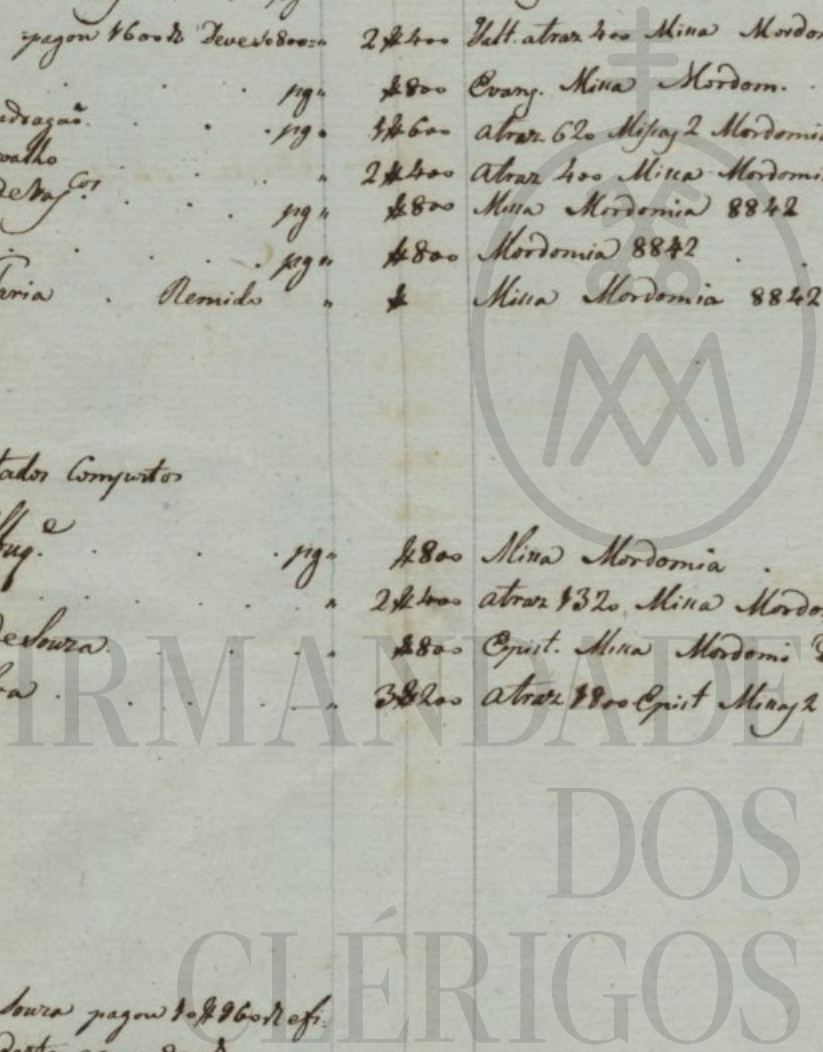 pagou 1600 rs Deve 800 „ 2$400 Falt. atraz 400 Missa Mordom
pg „ $800 Evang. Missa Mordom.
adragaõ . . . pg „ 1$600 atraz 620 Missas 2 Mordomia
valho „ 2$400 atraz 400 Missa Mordomi
de Vas.cos . . . pg „ $800 Missa Mordomia 8842
pg „ $800 Mordomia 8842
aria . Remido „ $ Missa Mordomia 8842
tados Compostos
uq.e . . . pg „ $800 Missa Mordomia
„ 2$400 atraz 1320 Missa Mordo
de Souza . . . „ $800 Epist. Missa Mordomi
va . . . „ 3$200 atraz 1800 Epist Missas 2
IRMANDADE
DOS
CLÉRIGOS
Souza pagou 10$960 rs e fi